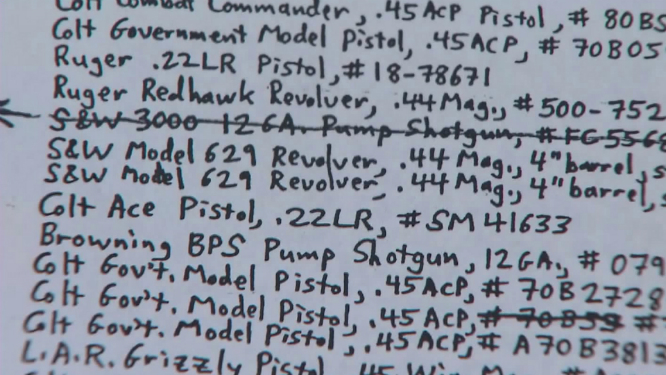 Colt Combat Commander, .45 ACP Pistol, # 80BS
Colt Government Model Pistol, .45ACP, # 70B05
Ruger .22LR Pistol, # 18-78671
Ruger Redhawk Revolver, .44 Mag., # 500-752
S&W 3000 12 GA. Pump Shotgun, # FG-5568
S&W Model 629 Revolver, .44 Mag., 4" barrel, s
S&W Model 629 Revolver, .44 Mag., 4" barrel, s
Colt Ace Pistol, .22LR, # SM41633
Browning BPS Pump Shotgun, 12GA., # 079
Colt Gov't. Model Pistol, .45ACP, # 70B2728
Colt Gov't. Model Pistol, .45ACP, # 70B59 #
Colt Gov't. Model Pistol, .45ACP, # A70B3813
L.A.R. Grizzly Pistol, .45 Win. Mag.